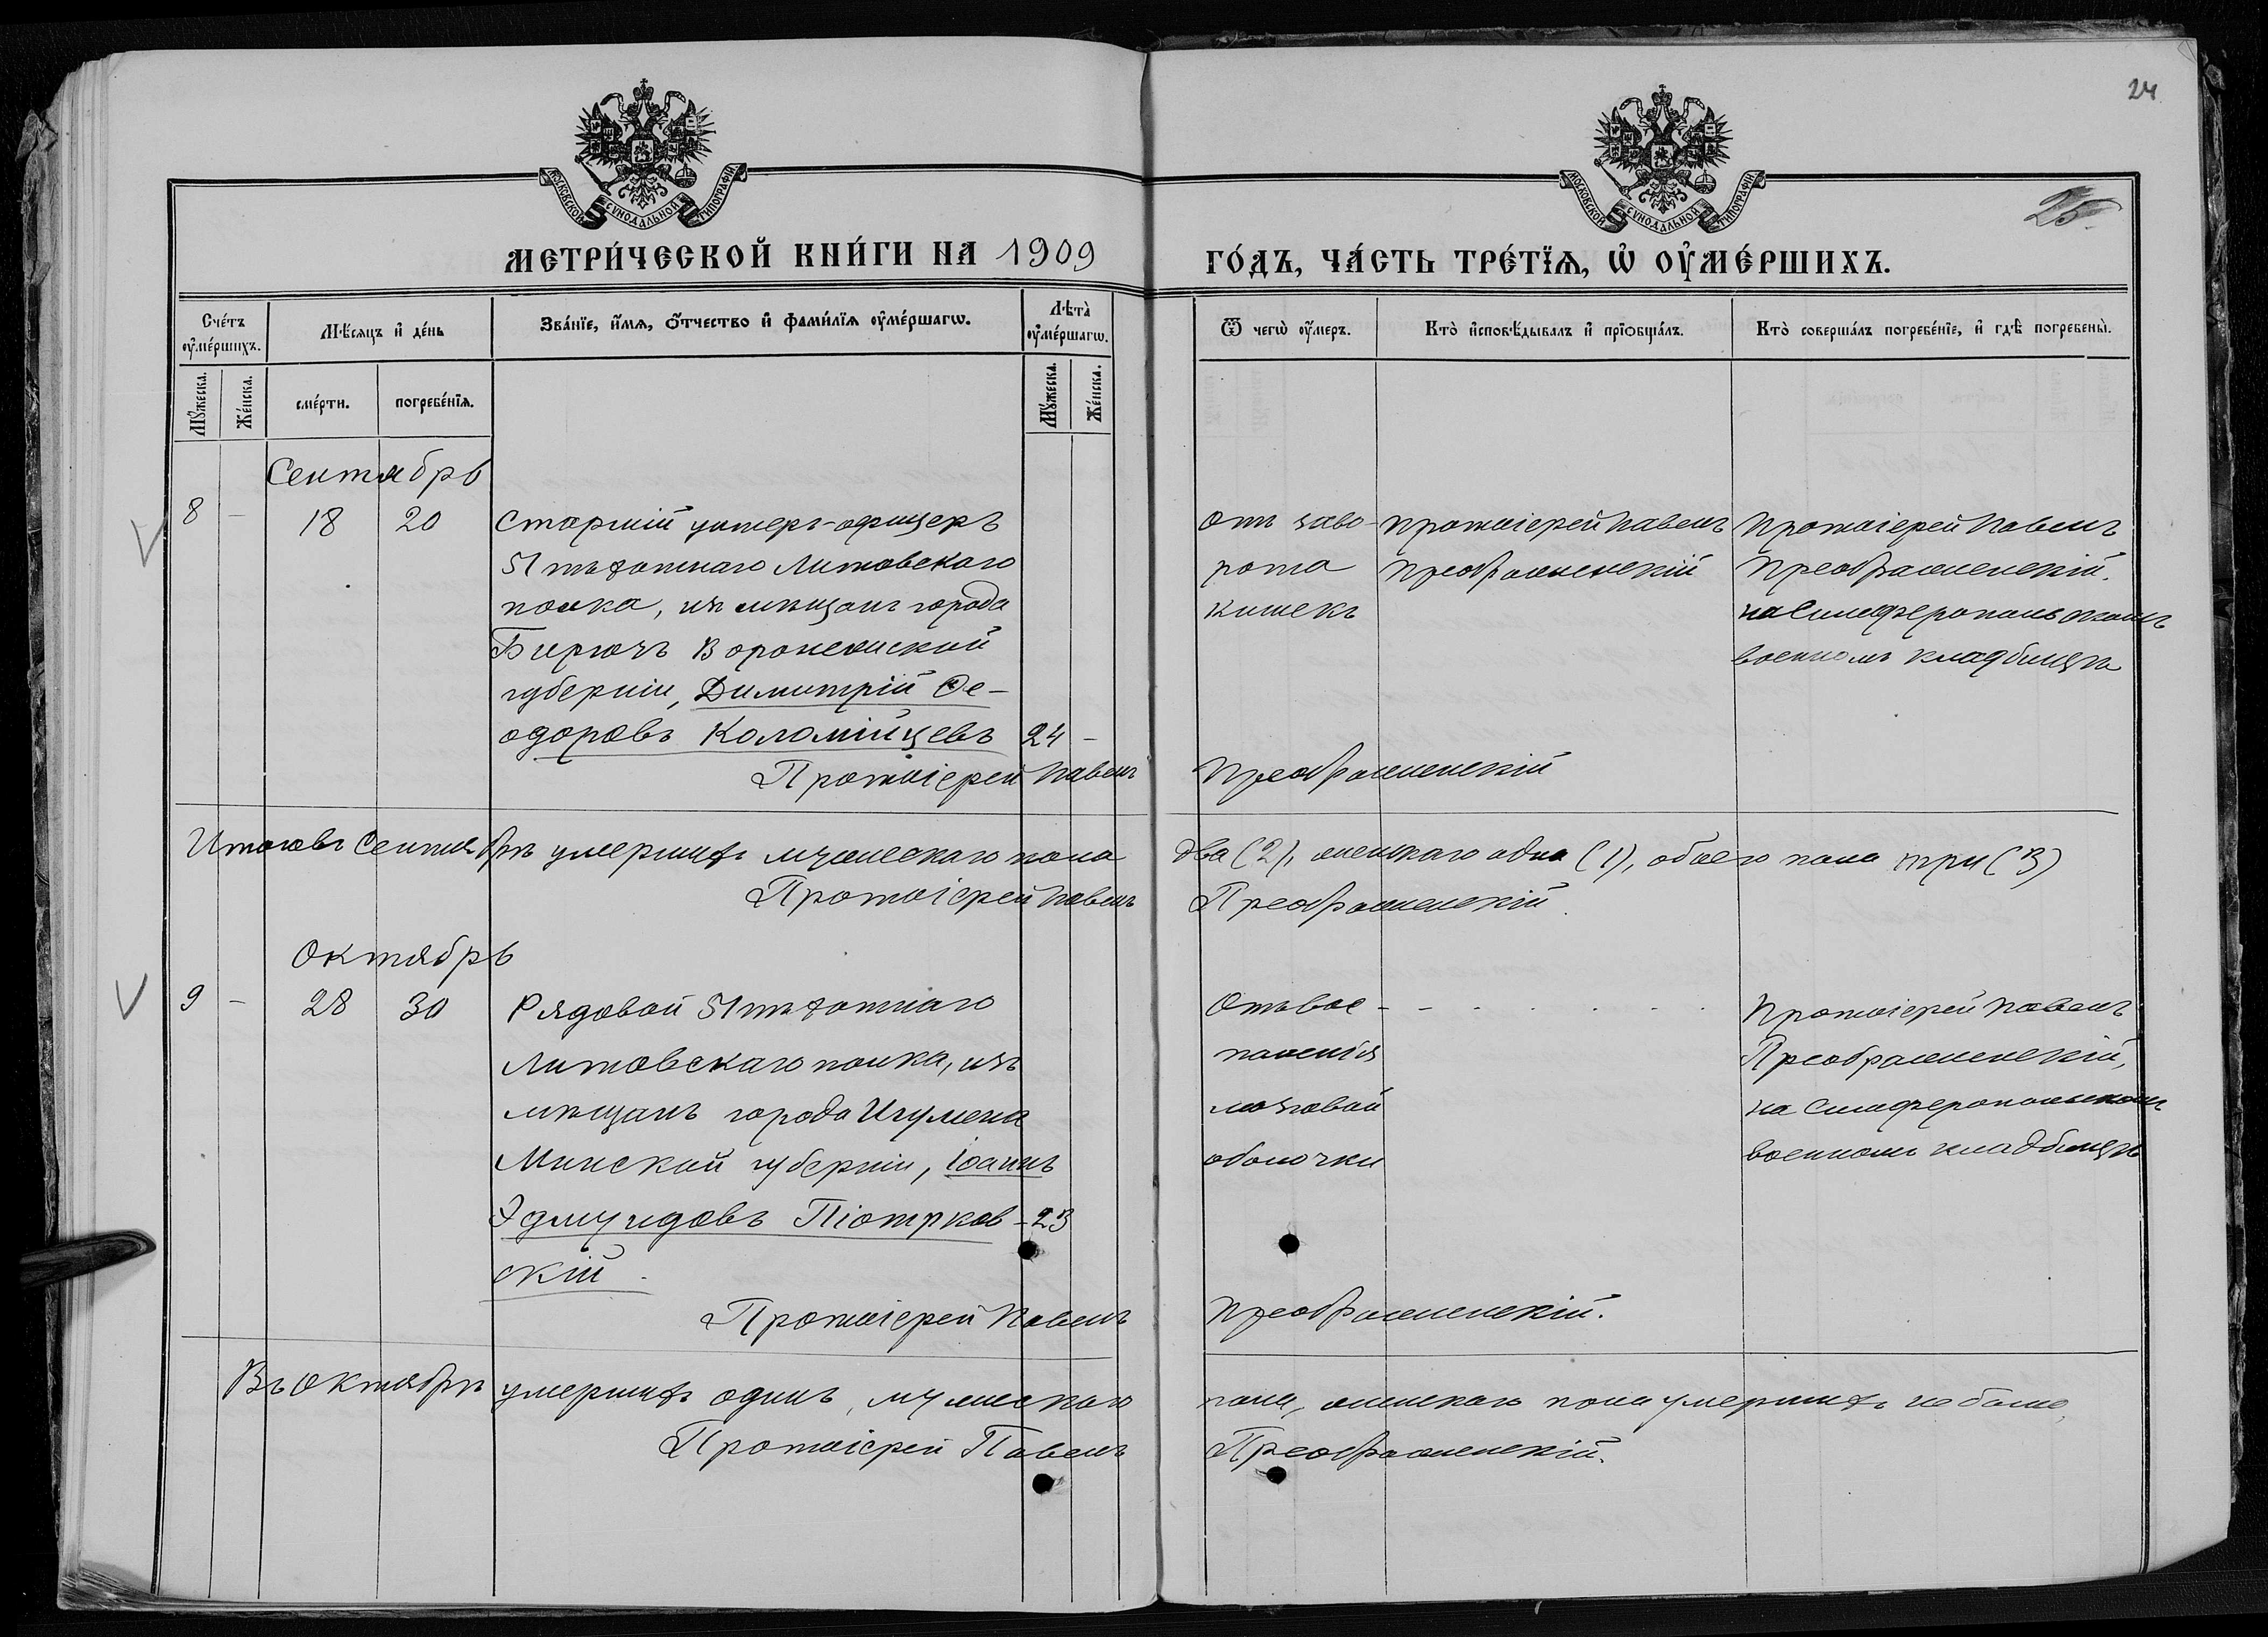 24
25
МОСКОВСКОЙ СѴНОДАЛЬНОЙ ТИПОГРАФІИ.
МОСКОВСКОЙ СѴНОДАЛЬНОЙ ТИПОГРАФІИ.
МЕТРИ́ЧЕСКОЙ КНИ́ГИ НА 1909
ГО́ДЪ, ЧА́СТЬ ТРЕ́ТЇѦ, Ѡ҆ ОУ҆МЕ́РШИХЪ.
Сче́тъ оу҆ме́ршихъ.
Мѣ́сѧцъ и҆ де́нь
Зва́нїе, и҆́мѧ, ѻ҆́тчество и҆ фами́лїѧ оу҆ме́ршагѡ.
Лѣ́та оу҆ме́ршагѡ.
Ѿ чегѡ̀ оу҆́меръ.
Кто̀ и҆сповѣ́дывалъ и҆ прїѡбща́лъ.
Кто̀ соверша́лъ погребе́нїе, и҆ гдѣ̀ погребены̀.
Мꙋ́жеска.
Же́нска.
сме́рти.
погребе́нїѧ.
Мꙋ́жеска.
Же́нска.
Сентябрь
8 - 18 20 Старшій унтеръ-офицеръ
51 пѣхотнаго Литовскаго
полка, изъ мѣщанъ города
Бирючъ Воронежской
губерніи, Димитрій Ѳе-
одоровъ Коломійцевъ 24 -
Отъ заво-
рота
кишекъ
Протоіерей Павелъ
Преображенскій
Протоіерей Павелъ
Преображенскій.
на Симферопольскомъ
военномъ кладбищѣ
Протоіерей Павелъ Преображенскій
Итого въ Сентябрѣ умершихъ мужескаго пола два (2), женскаго одна (1), обоего пола три (3)
Протоіерей Павелъ Преображенскій.
Октябрь
9 - 28 30 Рядовой 51 пѣхотнаго
Литовскаго полка, изъ
мѣщанъ города Игумена
Минской губерніи, Іоаннъ
Эдмундовъ Піотрков- 23
скій.
Отъ вос-
паленія
мозговой
оболочки
Протоіерей Павелъ
Преображенскій,
на Симферопольскомъ
военномъ кладбищѣ
Протоіерей Павелъ Преображенскій.
Въ Октябрѣ умершихъ одинъ, мужескаго пола, женскаго пола умершихъ не было,
Протоіерей Павелъ Преображенскій.